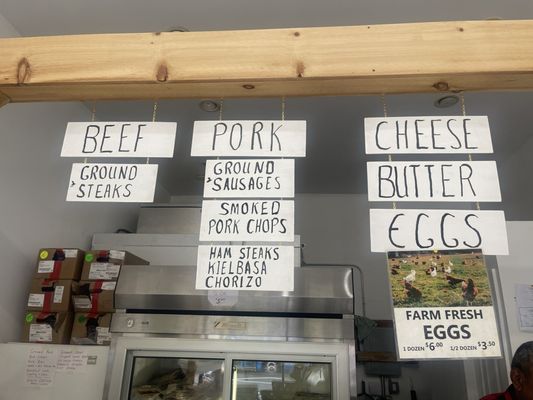 BEEF
GROUND
STEAKS
PORK
GROUND
SAUSAGES
SMOKED
PORK CHOPS
HAM STEAKS
KIELBASA
CHORIZO
CHEESE
BUTTER
EGGS
FARM FRESH
EGGS
1 DOZEN $6.00 1/2 DOZEN $3.50